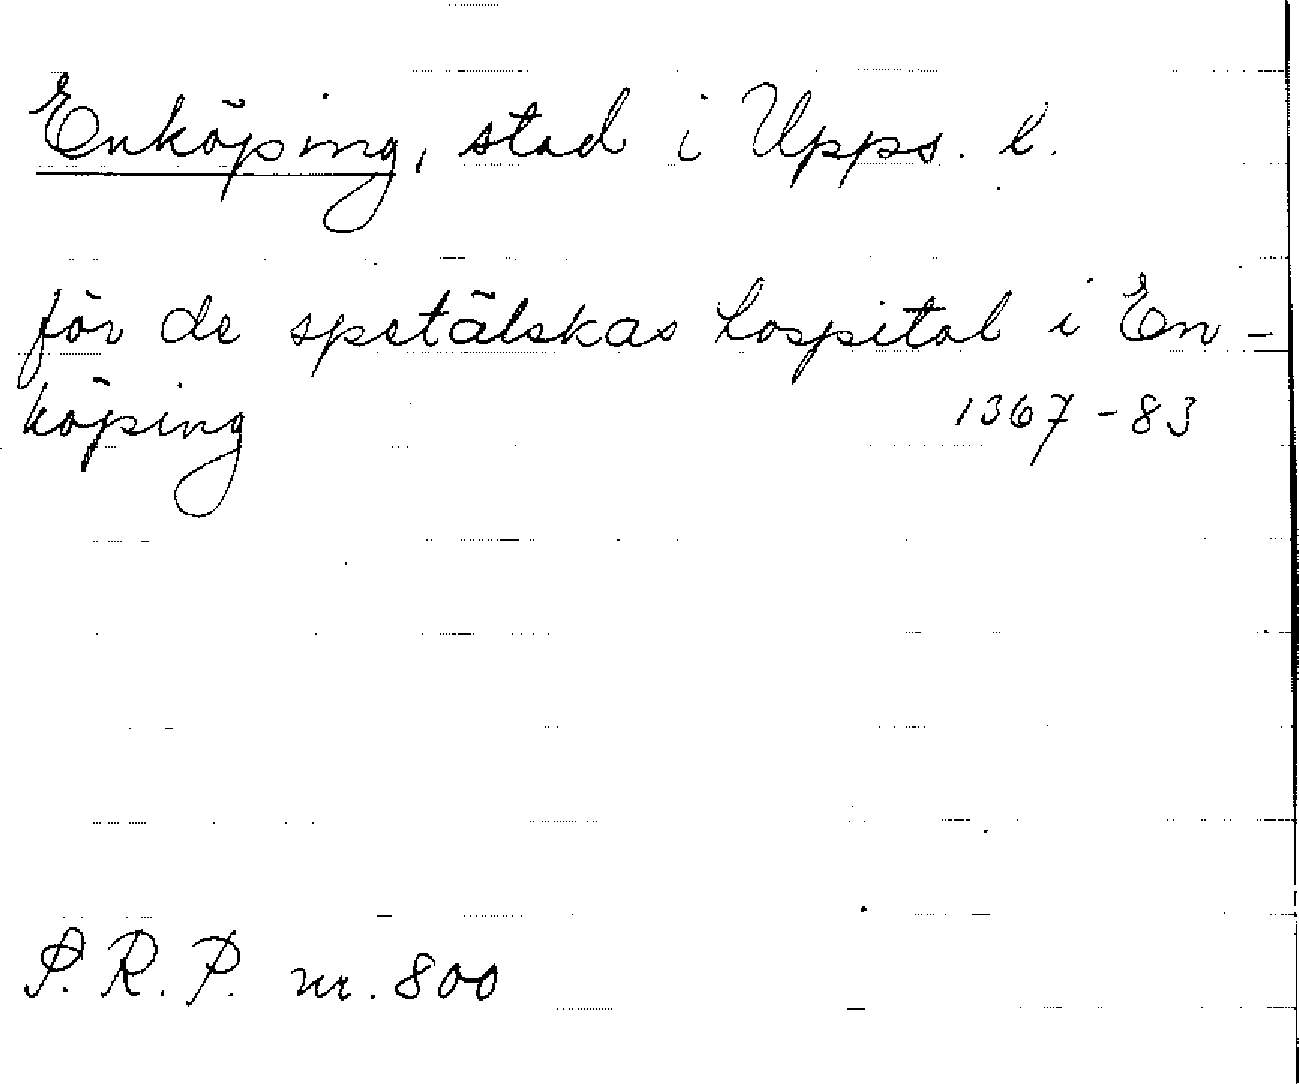 Enköping, stad i Upps. l.
för de spetälskas hospital i En-
köping 1367-83
P. R. P. nr. 800